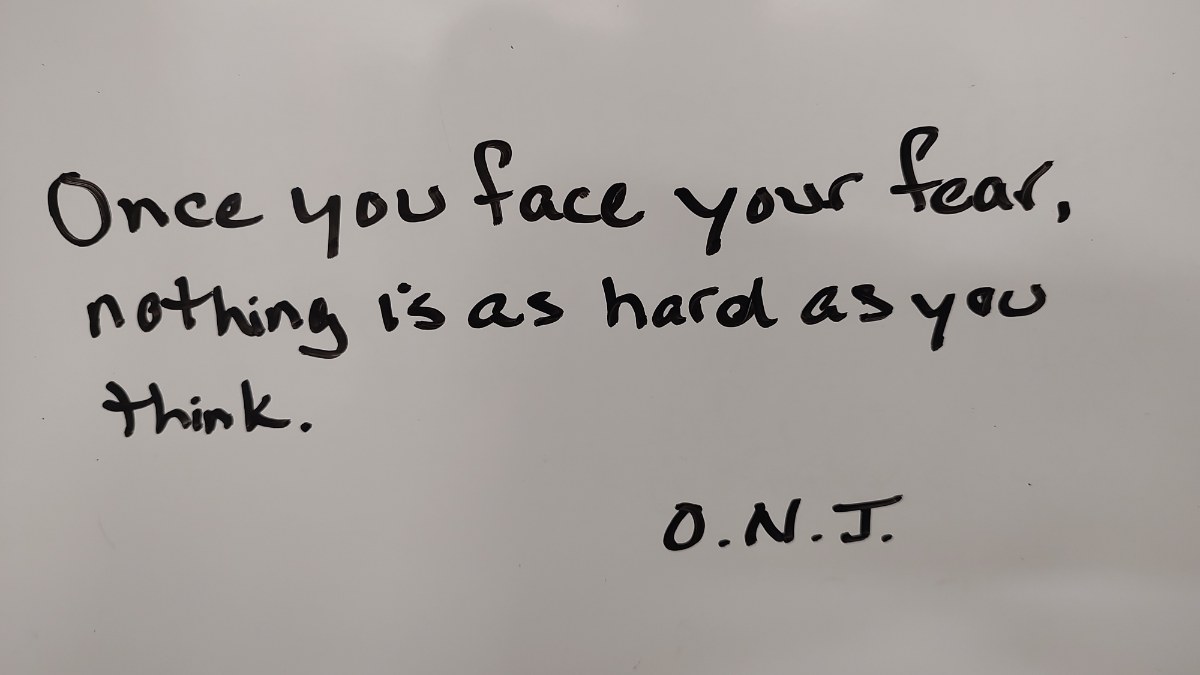 Once you face your fear,
nothing is as hard as you
think.
O.N.J.